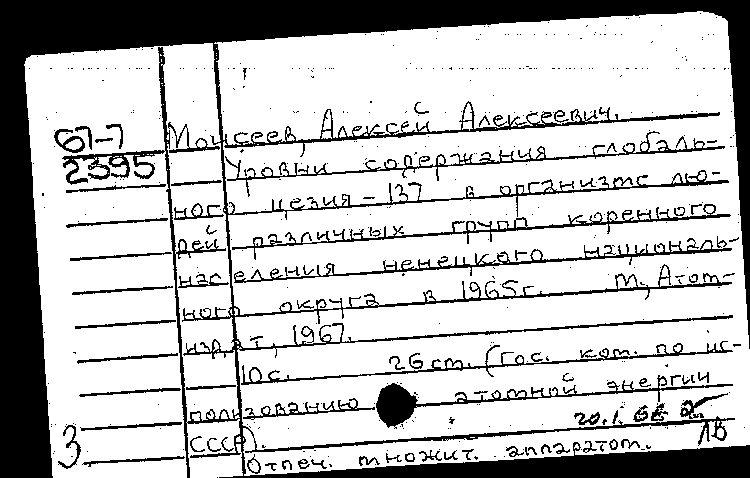 67-7 Моисеев, Алексей Алексеевич.
2395 Уровни содержания глобаль-
ного цезия-137 в организме лю-
дей различных групп коренного
населения ненецкого националь-
ного округа в 1965г. М., Атом-
издат, 1967.
10с. 26 см. (Гос. ком. по ис-
пользованию атомной энергии
СССР). 20.1.68
3 Отпеч. множит. аппаратом. ЛВ